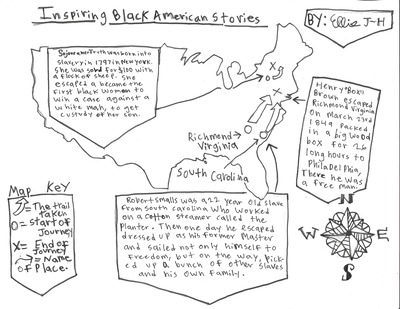 Inspiring Black American Stories
BY: Ellie J-H
Sojourner Truth was born into
slavery in 1797 in New York.
She was sold for $100 with
a flock of sheep. She
escaped a became the
first black women to
win a case against a
white man, to get
custudy of her son.
Henry "Box"
Brown escaped
Richmond Virginia
On march 23rd
1849. Packed
in a big wood
box for 26
long hours to
PhilaDelPhia,
There he was
a free man.
Richmond
Virginia
South Carolina
Robert Smalls was a 22 year old slave
from South carolina who worked
on a cotton steamer called the
Planter. Then one day he Escaped
dressed up as his former Master
and sailed not only himself to
Freedom, but on the way, pick-
ed up a bunch of other slaves
and his own family.
Map Key
= The trail
taken
O = start of
Journey
X = End of
Journey
= Name
of Place.
N
W E
S